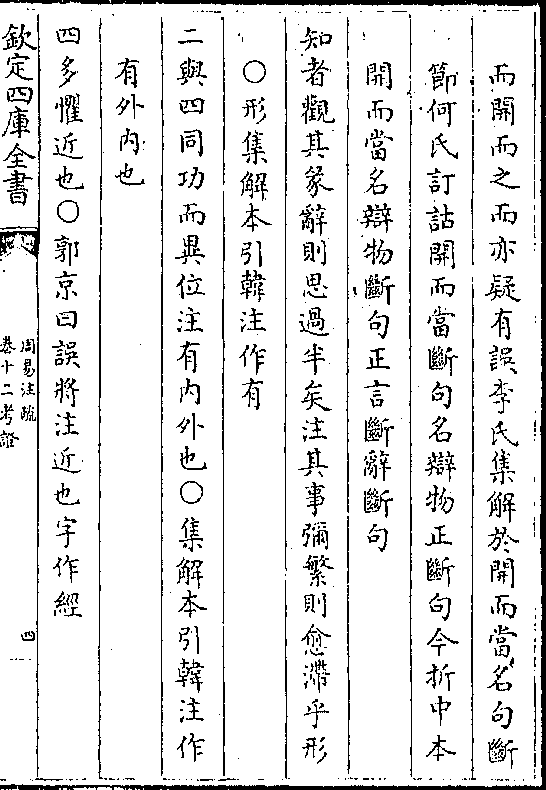 而開而之而亦疑有誤李氏集解於開而當名句斷
節何氏訂詁開而當斷句名辯物正斷句今折中本
開而當名辯物斷句正言斷辭斷句
知者觀其彖辭則思過半矣注其事彌繁則愈滯乎形
〇形集解本引韓注作有
二與四同功而異位注有内外也〇集解本引韓注作
有外内也
四多懼近也〇郭京曰誤將注近也字作經
欽定四庫全書
周易注疏
卷十二考證
四